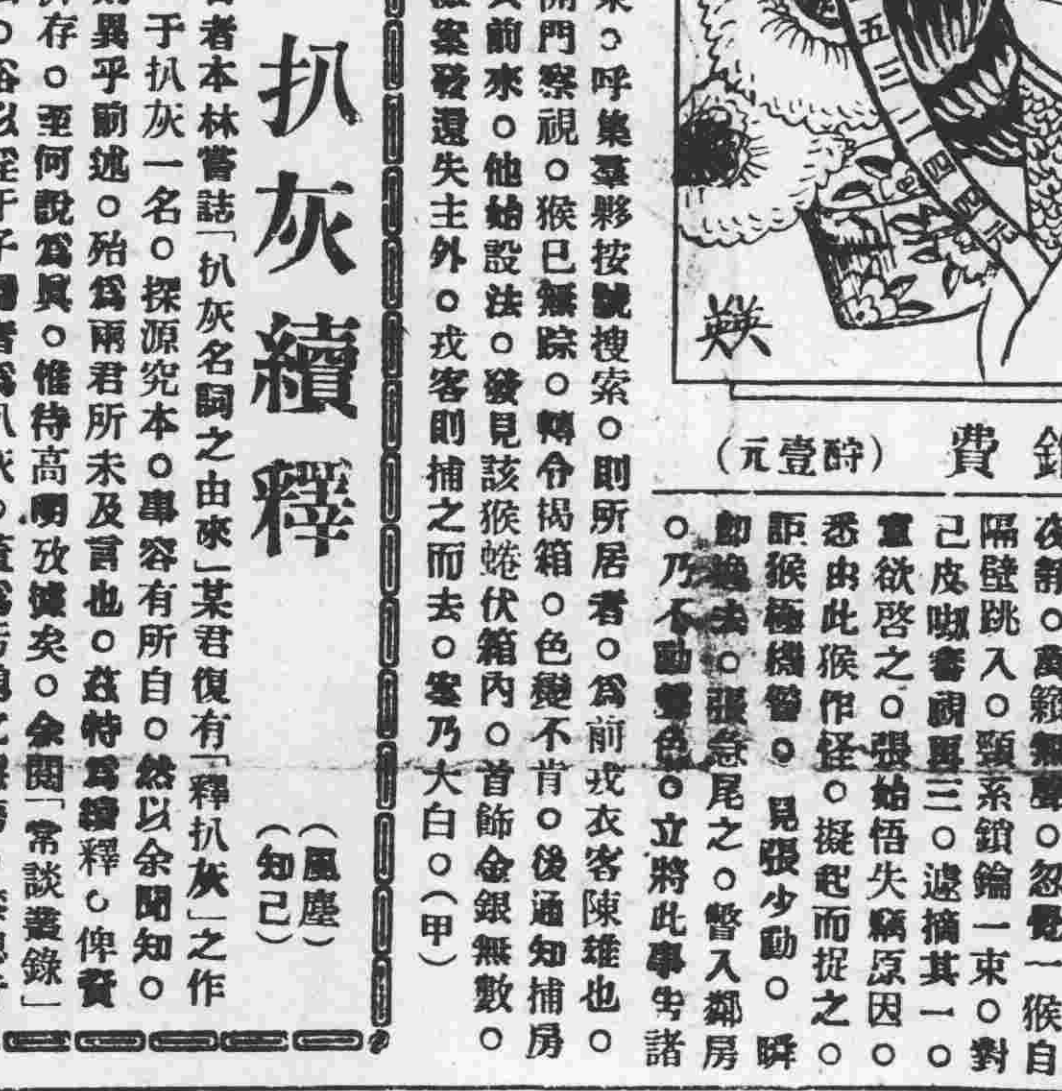 五三二一四四
英
費
(元壹酧)
夜靜。萬籟無聲。忽覺一猴自
隔壁跳入。頸系鎖鑰一束。對
己皮啣審視再三。遽摘其一。
意欲啓之。張始悟失竊原因。
悉由此猴作怪。擬起而捉之。
詎猴極機警。見張少動。瞬
即逸去。張急尾之。瞥入鄰房
。乃不動聲色。立將此事告諸
呼集羣夥按號搜索。則所居者。爲前戎衣客陳雄也。
開門察視。猴已無踪。轉令揭箱。色變不肯。後通知捕房
前來。他始設法。發見該猴蜷伏箱內。首飾金銀無數。
案發還失主外。戎客則捕之而去。案乃大白。(甲)
扒灰續釋
(風塵)
(知己)
者本林嘗誌「扒灰名詞之由來」某君復有「釋扒灰」之作
于扒灰一名。探源究本。事容有所自。然以余聞知。
異乎前述。殆爲兩君所未及言也。茲特爲續釋。俾資
存。至何說爲眞。惟待高明攷據矣。余閱「常談叢錄」